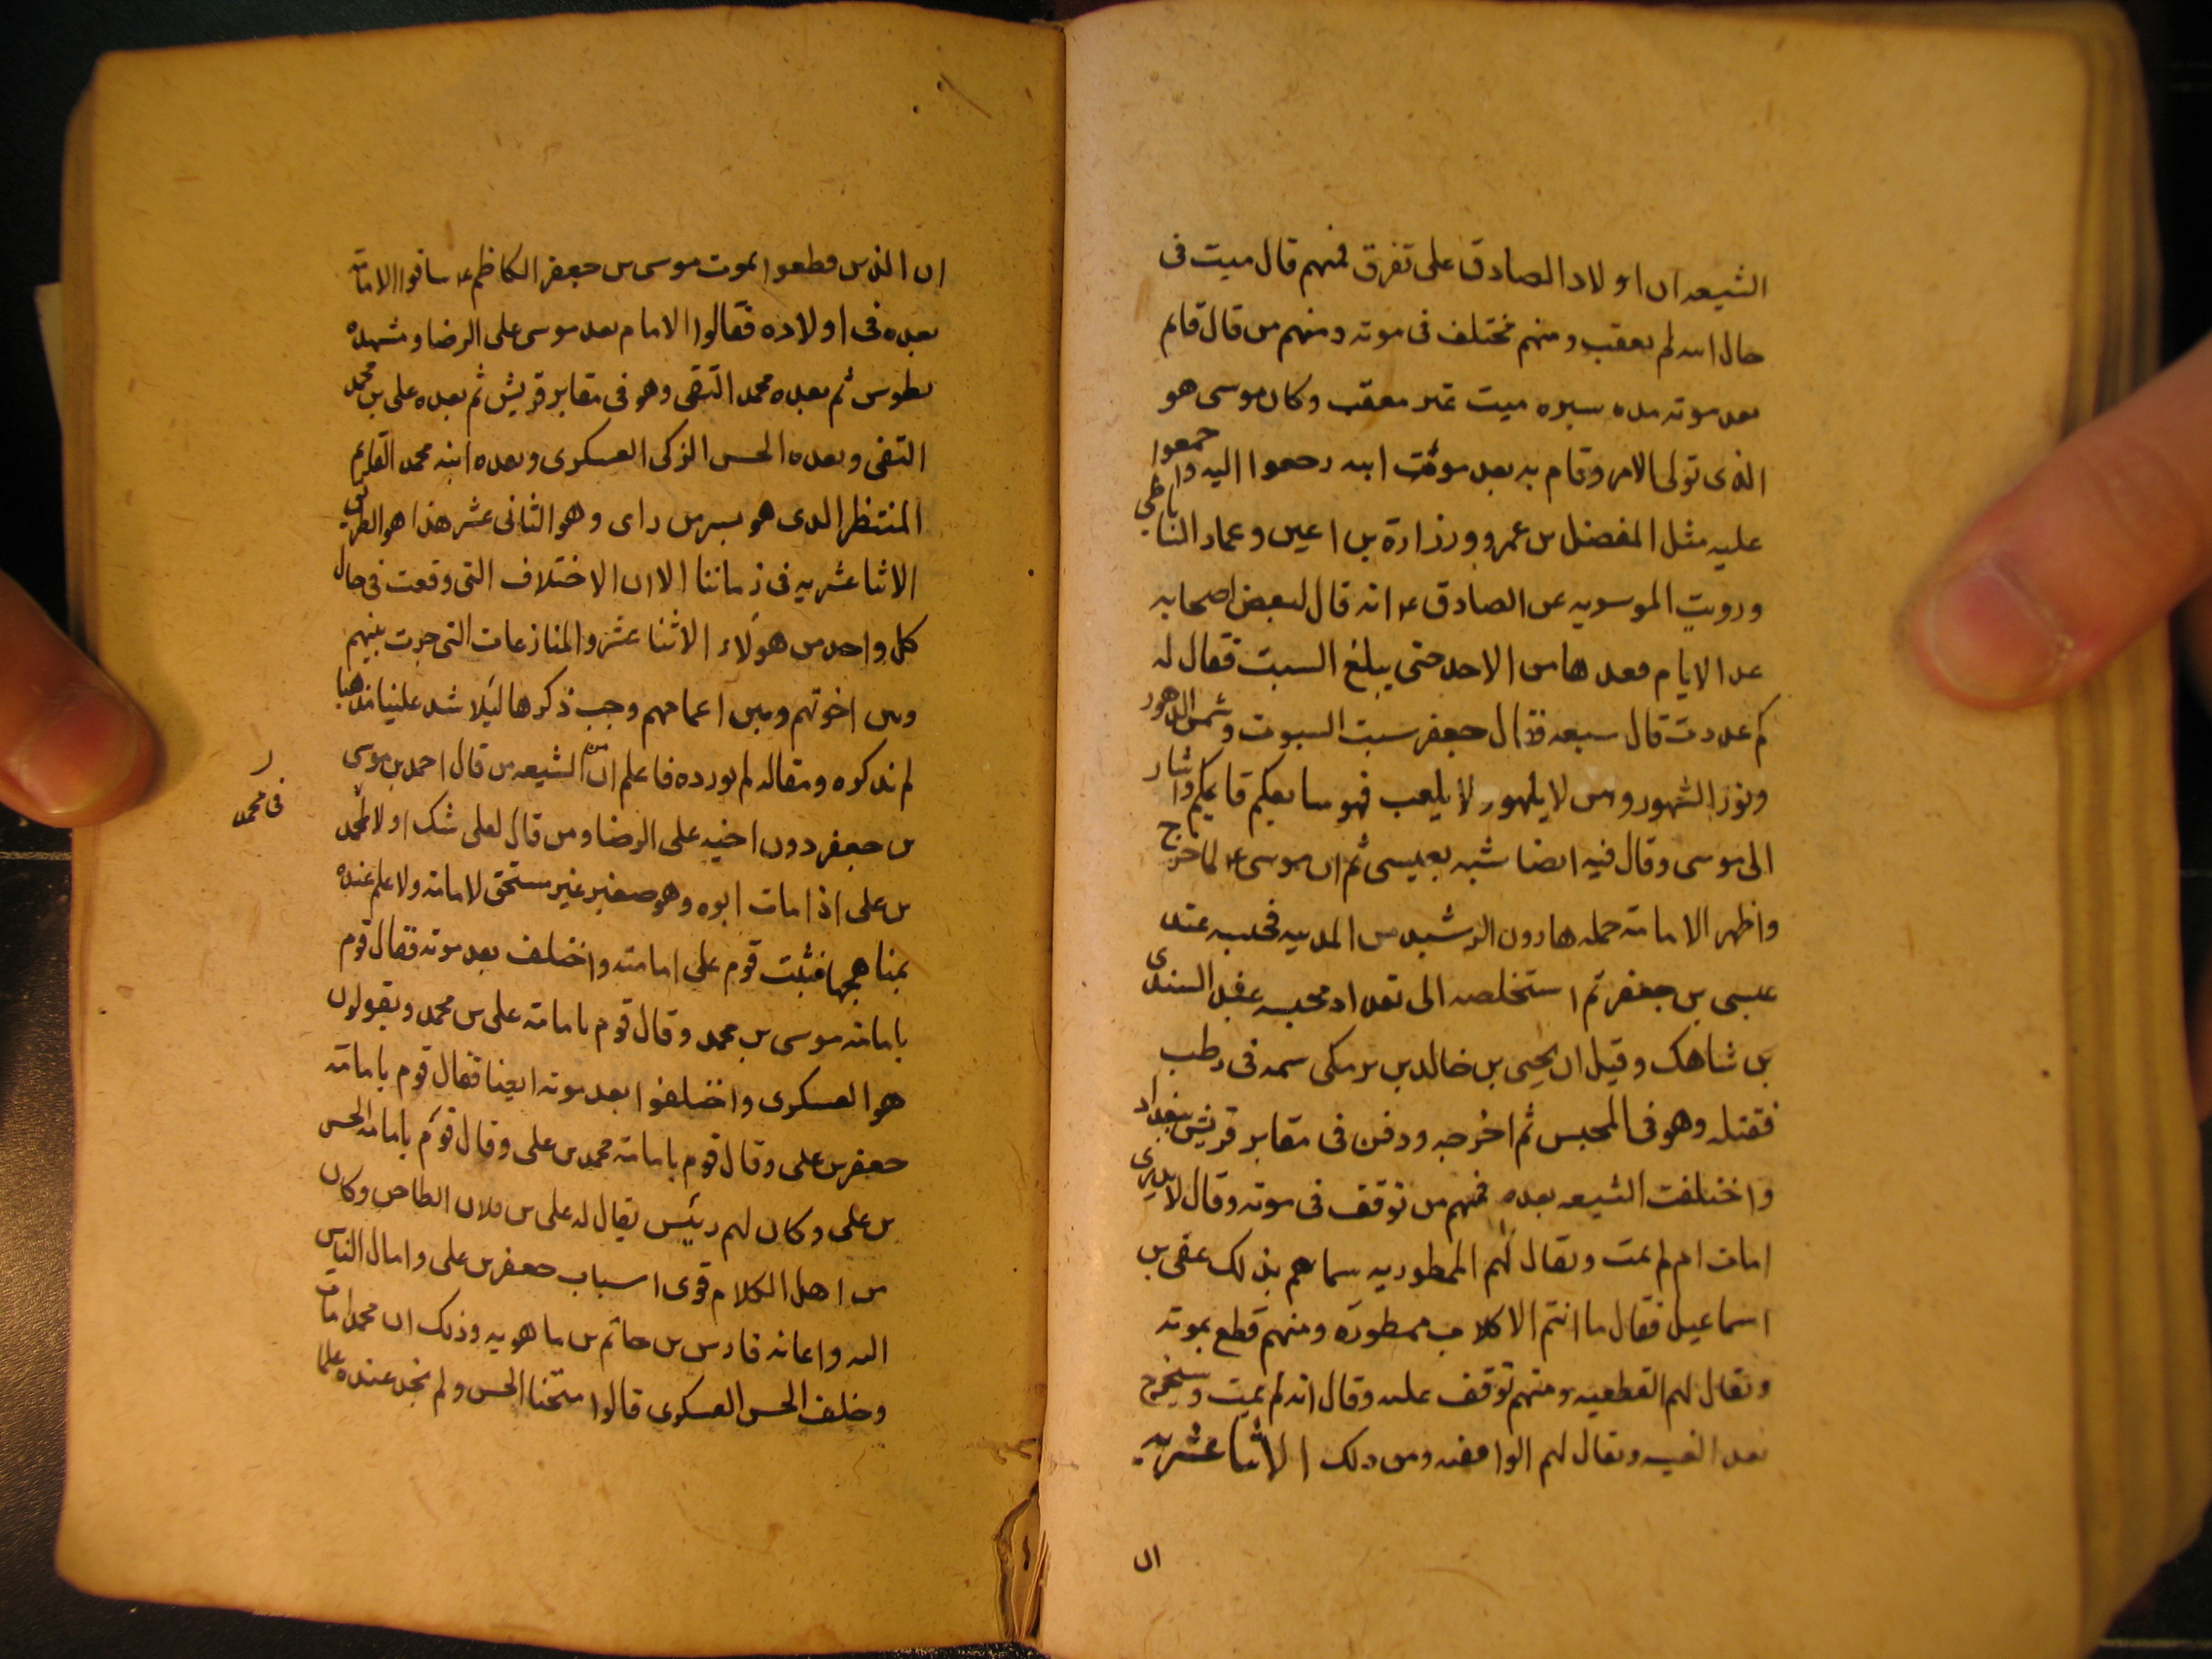 الشيعه ان اولاد الصادق على تفرق فمنهم قال ميت فى
حال ابيه لم يعقب ومنهم مختلف فى موته ومنهم من قال قايم
بعد موته مده يسيره ميت غير معقب وكان موسى هو
الذى تولى الامر وقام به بعد موت ابيه رجعوا اليه واجمعوا
عليه مثل المفضل بن عمرو وزرارة بن اعين وعمار الناباطى
ورويت الموسويه عن الصادق ع انه قال لبعض اصحابه
عد الايام فعدها من الاحد حتى يبلغ السبت فقال له
كم عددت قال سبعه فقال جعفر سبت السبوت وشمس الدهور
ونور الشهور ومن لا يلهو ولا يلعب فهو سابعكم قايمكم واشار
الى موسى وقال فيه ايضا شبه بعيسى ثم ان موسى ع لما خرج
واظهر الامامة حمله هارون الرشيد من المدينه فحبسه عند
عيسى بن جعفر ثم استخلصه الى بغداد محبسه عند السندى
بن شاهك وقيل ان يحيى بن خالد بن برمكى سمه فى رطب
فقتله وهو فى المحبس ثم اخرجه ودفن فى مقابر قريش بغداد
واختلفت الشيعه بعده فمنهم من توقف فى موته وقال لا يدرى
امات ام لم يمت ويقال لهم الممطوريه سماهم بذلك على بن
اسماعيل فقال ما انتم الا كلاب ممطورة ومنهم قطع بموته
ويقال لهم القطعيه ومنهم توقف عليه وقال انه لم يمت وسيخرج
بعد الغيبه ويقال لهم الواقفه ومن ذلك الاثنا عشريه
ان
ان الذين قطعوا بموت موسى بن جعفر الكاظم ع ساقوا الامامة
بعده فى اولاده فقالوا الامام بعد موسى على الرضا ومشهده
بطوس ثم بعده محمد التقى وهو فى مقابر قريش ثم بعده على بن محمد
التقى وبعده الحسن الزكى العسكرى وبعده ابنه محمد القايم
المنتظر الذى هو بسر من راى وهو الثانى عشر هذا هو الطريق
الاثنا عشريه فى زماننا الا ان الاختلاف التى وقعت فى حال
كل واحد من هولاء الاثنا عشر والمنازعات التى جرت بينهم
وبين اخوتهم وبين اعمامهم وجب ذكرها ليلا شد علينا مذهبا
لم نذكره ومقاله لم نورده فاعلم ان من الشيعه من قال احمد بن موسى
بن جعفر دون اخيه على الرضا ومن قال لعلى شك اولا محمد
فى محمد
بن على اذا مات ابوه وهو صغير غير مستحق لامامة ولا علم عنده
بمناهجها فثبت قوم على امامته واختلف بعد موته فقال قوم
بامامة موسى بن محمد وقال قوم بامامة على بن محمد ويقولون
هو العسكرى واختلفوا بعد موته ايضا فقال قوم بامامة
جعفر بن على وقال قوم بامامة محمد بن على وقال قوم بامامة الحسن
بن على وكان لهم رئيس يقال له على بن فلان الطاحن وكان
من اهل الكلام قوى اسباب جعفر بن على وامال الناس
اليه واعانه فارس بن حاتم بن ماهويه وذلك ان محمدا مات
وخلف الحسن العسكرى قالوا امتحنا الحسن ولم نجد عنده علما